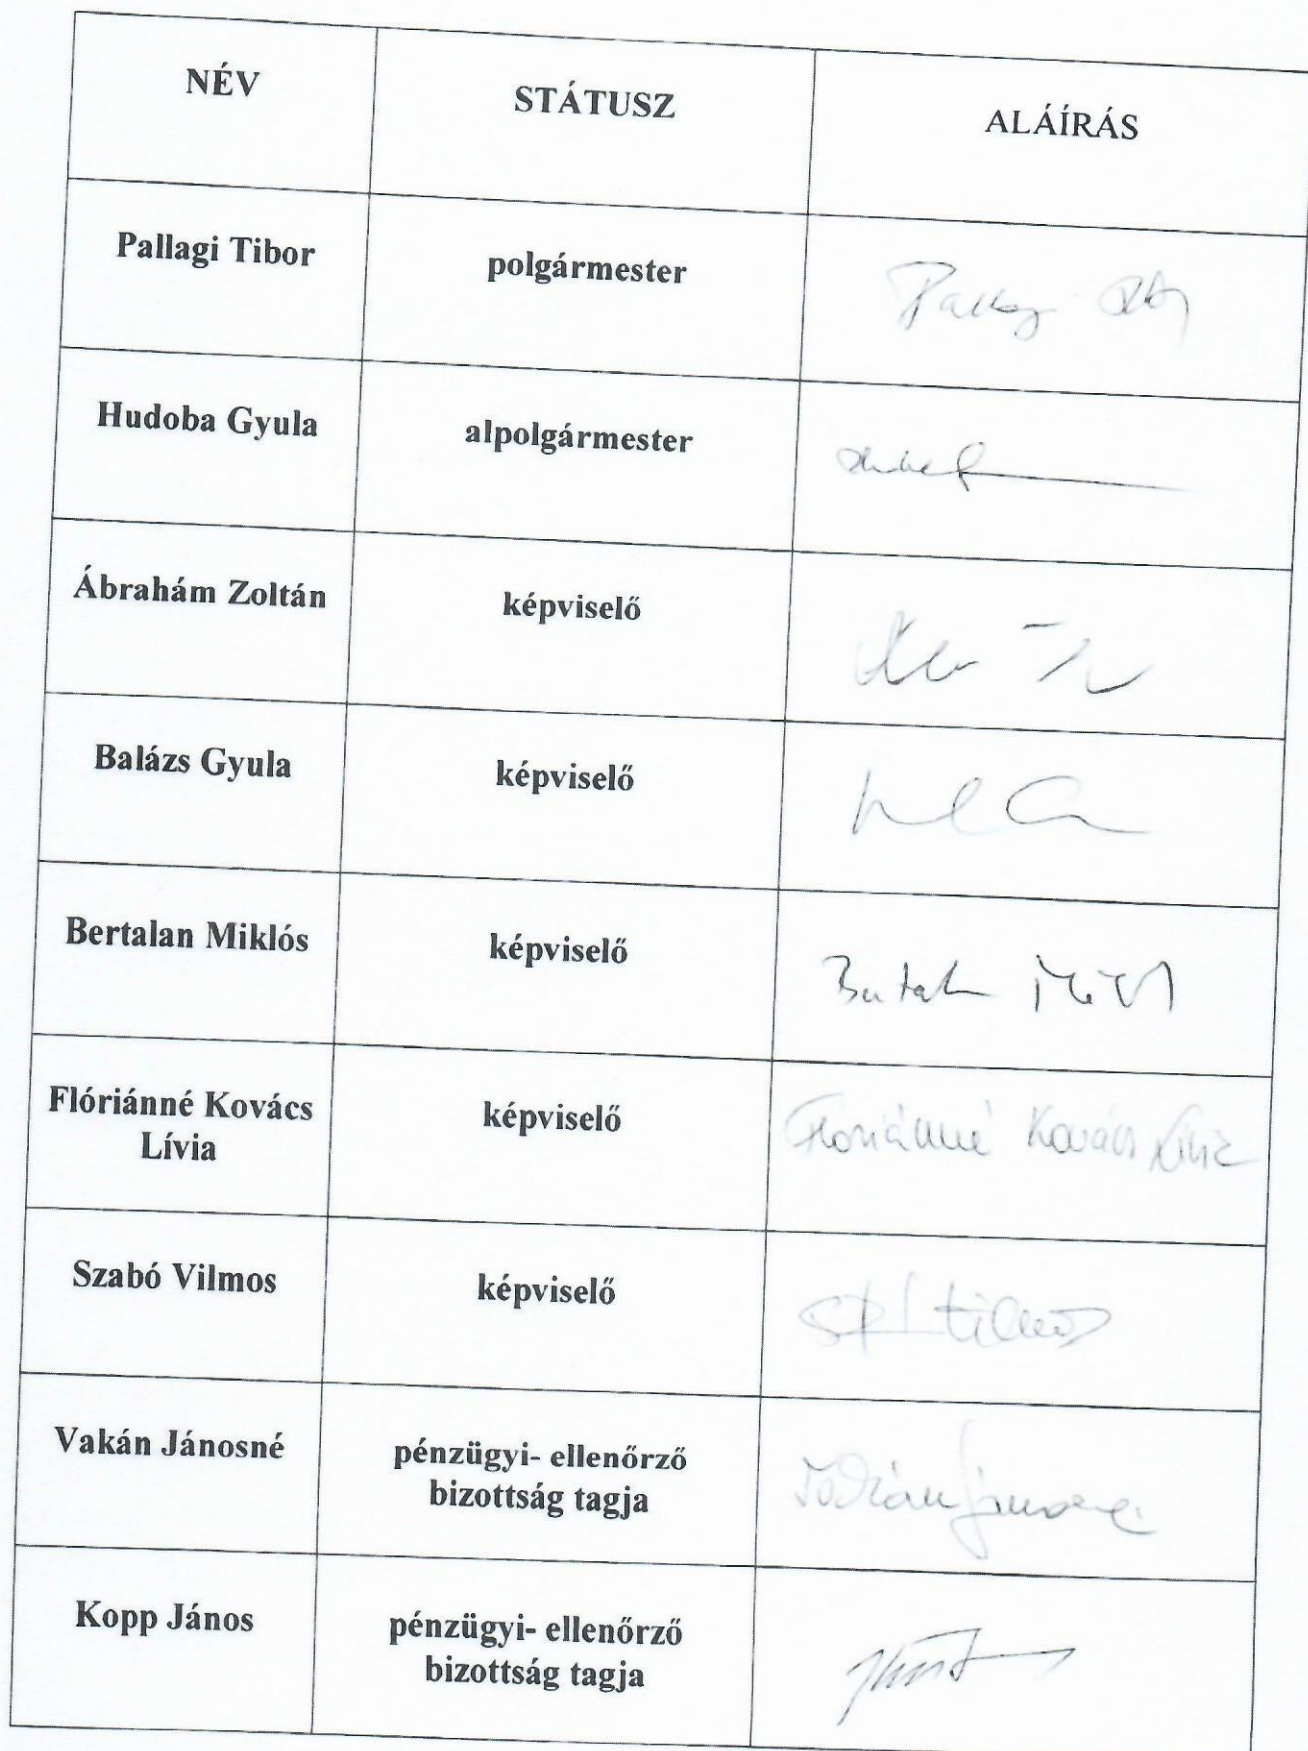 NÉV STÁTUSZ ALÁÍRÁS
Pallagi Tibor polgármester
Hudoba Gyula alpolgármester
Ábrahám Zoltán képviselő
Balázs Gyula képviselő
Bertalan Miklós képviselő
Flóriánné Kovács képviselő Flóriánné Kovács Lívia
Lívia
Szabó Vilmos képviselő
Vakán Jánosné pénzügyi- ellenőrző
bizottság tagja
Kopp János pénzügyi- ellenőrző
bizottság tagja